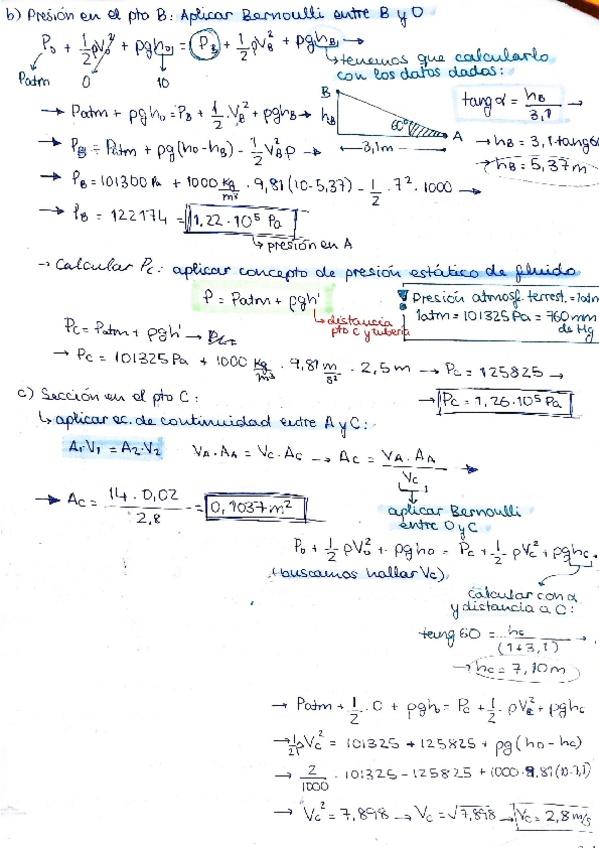 b) Presión en el pto B: Aplicar Bernoulli entre B y O
P₀ + 1/2 ρV₀² + ρgh₀ = P_B + 1/2 ρV_B² + ρgh_B →
Patm 0 10
↳ tenemos que calcularlo con los datos dados:
→ Patm + ρgh₀ = P_B + 1/2 · V_B² + ρgh_B →
B
h_B
60°
A
3,1m
tang α = h_B / 3,1 →
→ h_B = 3,1 tang 60
→ h_B = 5,37 m
→ P_B = Patm + ρg(h₀ - h_B) - 1/2 V_B² ρ →
→ P_B = 101300 Pa + 1000 kg/m³ · 9,81 (10 - 5,37) - 1/2 · 7² · 1000 →
→ P_B = 122174 = 1,22 · 10⁵ Pa
↳ presión en A
→ Calcular Pc: aplicar concepto de presión estático de fluido
P = Patm + ρgh'
↳ distancia pto C y tubería
Presión atmosf. terrest. = 1atm
1atm = 101325 Pa = 760 mm de Hg
Pc = Patm + ρgh' →
→ Pc = 101325 Pa + 1000 kg/m³ · 9,81 m/s² · 2,5 m → Pc = 125825 →
→ Pc = 1,26 · 10⁵ Pa
c) Sección en el pto C:
↳ aplicar ec. de continuidad entre A y C:
A₁V₁ = A₂·V₂ V_A · A_A = V_C · A_C → A_C = V_A · A_A / V_C →
→ A_C = 14 · 0,02 / 2,8 = 0,1037 m²
aplicar Bernoulli entre O y C
P₀ + 1/2 ρV₀² + ρgh₀ = P_C + 1/2 · ρV_C² + ρgh_C
(buscamos hallar V_C)
calcular con α y distancia a C:
tang 60 = h_C / (1+3,1) →
→ h_C = 7,10 m
→ Patm + 1/2 · 0 + ρgh₀ = P_C + 1/2 · ρV_C² + ρgh_C
→ 1/2 ρV_C² = 101325 + 125825 + ρg(h₀ - h_C)
→ 2/1000 · 101325 - 125825 + 1000 · 9,81 (10 - 7,1)
→ V_C² = 7,898 → V_C = √7,898 → V_C = 2,8 m/s